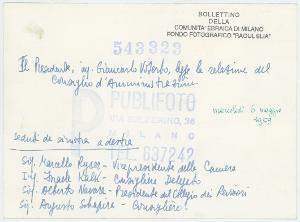 BOLLETTINO
DELLA
COMUNITÀ EBRAICA DI MILANO
FONDO FOTOGRAFICO "RAOUL ELIA"
543323
Il Presidente, ing. Giancarlo legge la relazione del
Consiglio d'Amministrazione
PUBLIFOTO
mercoledì 6 maggio
1959
VIA
MILANO
TEL. 637242
seduti da sinistra a destra
Sig. Marcello Russo - Vicepresidente della Camera
Ing. - Consigliere Delegato
Sig. Alberto - Presidente del Collegio dei Revisori
Sig. Augusto Schapira - Consigliere